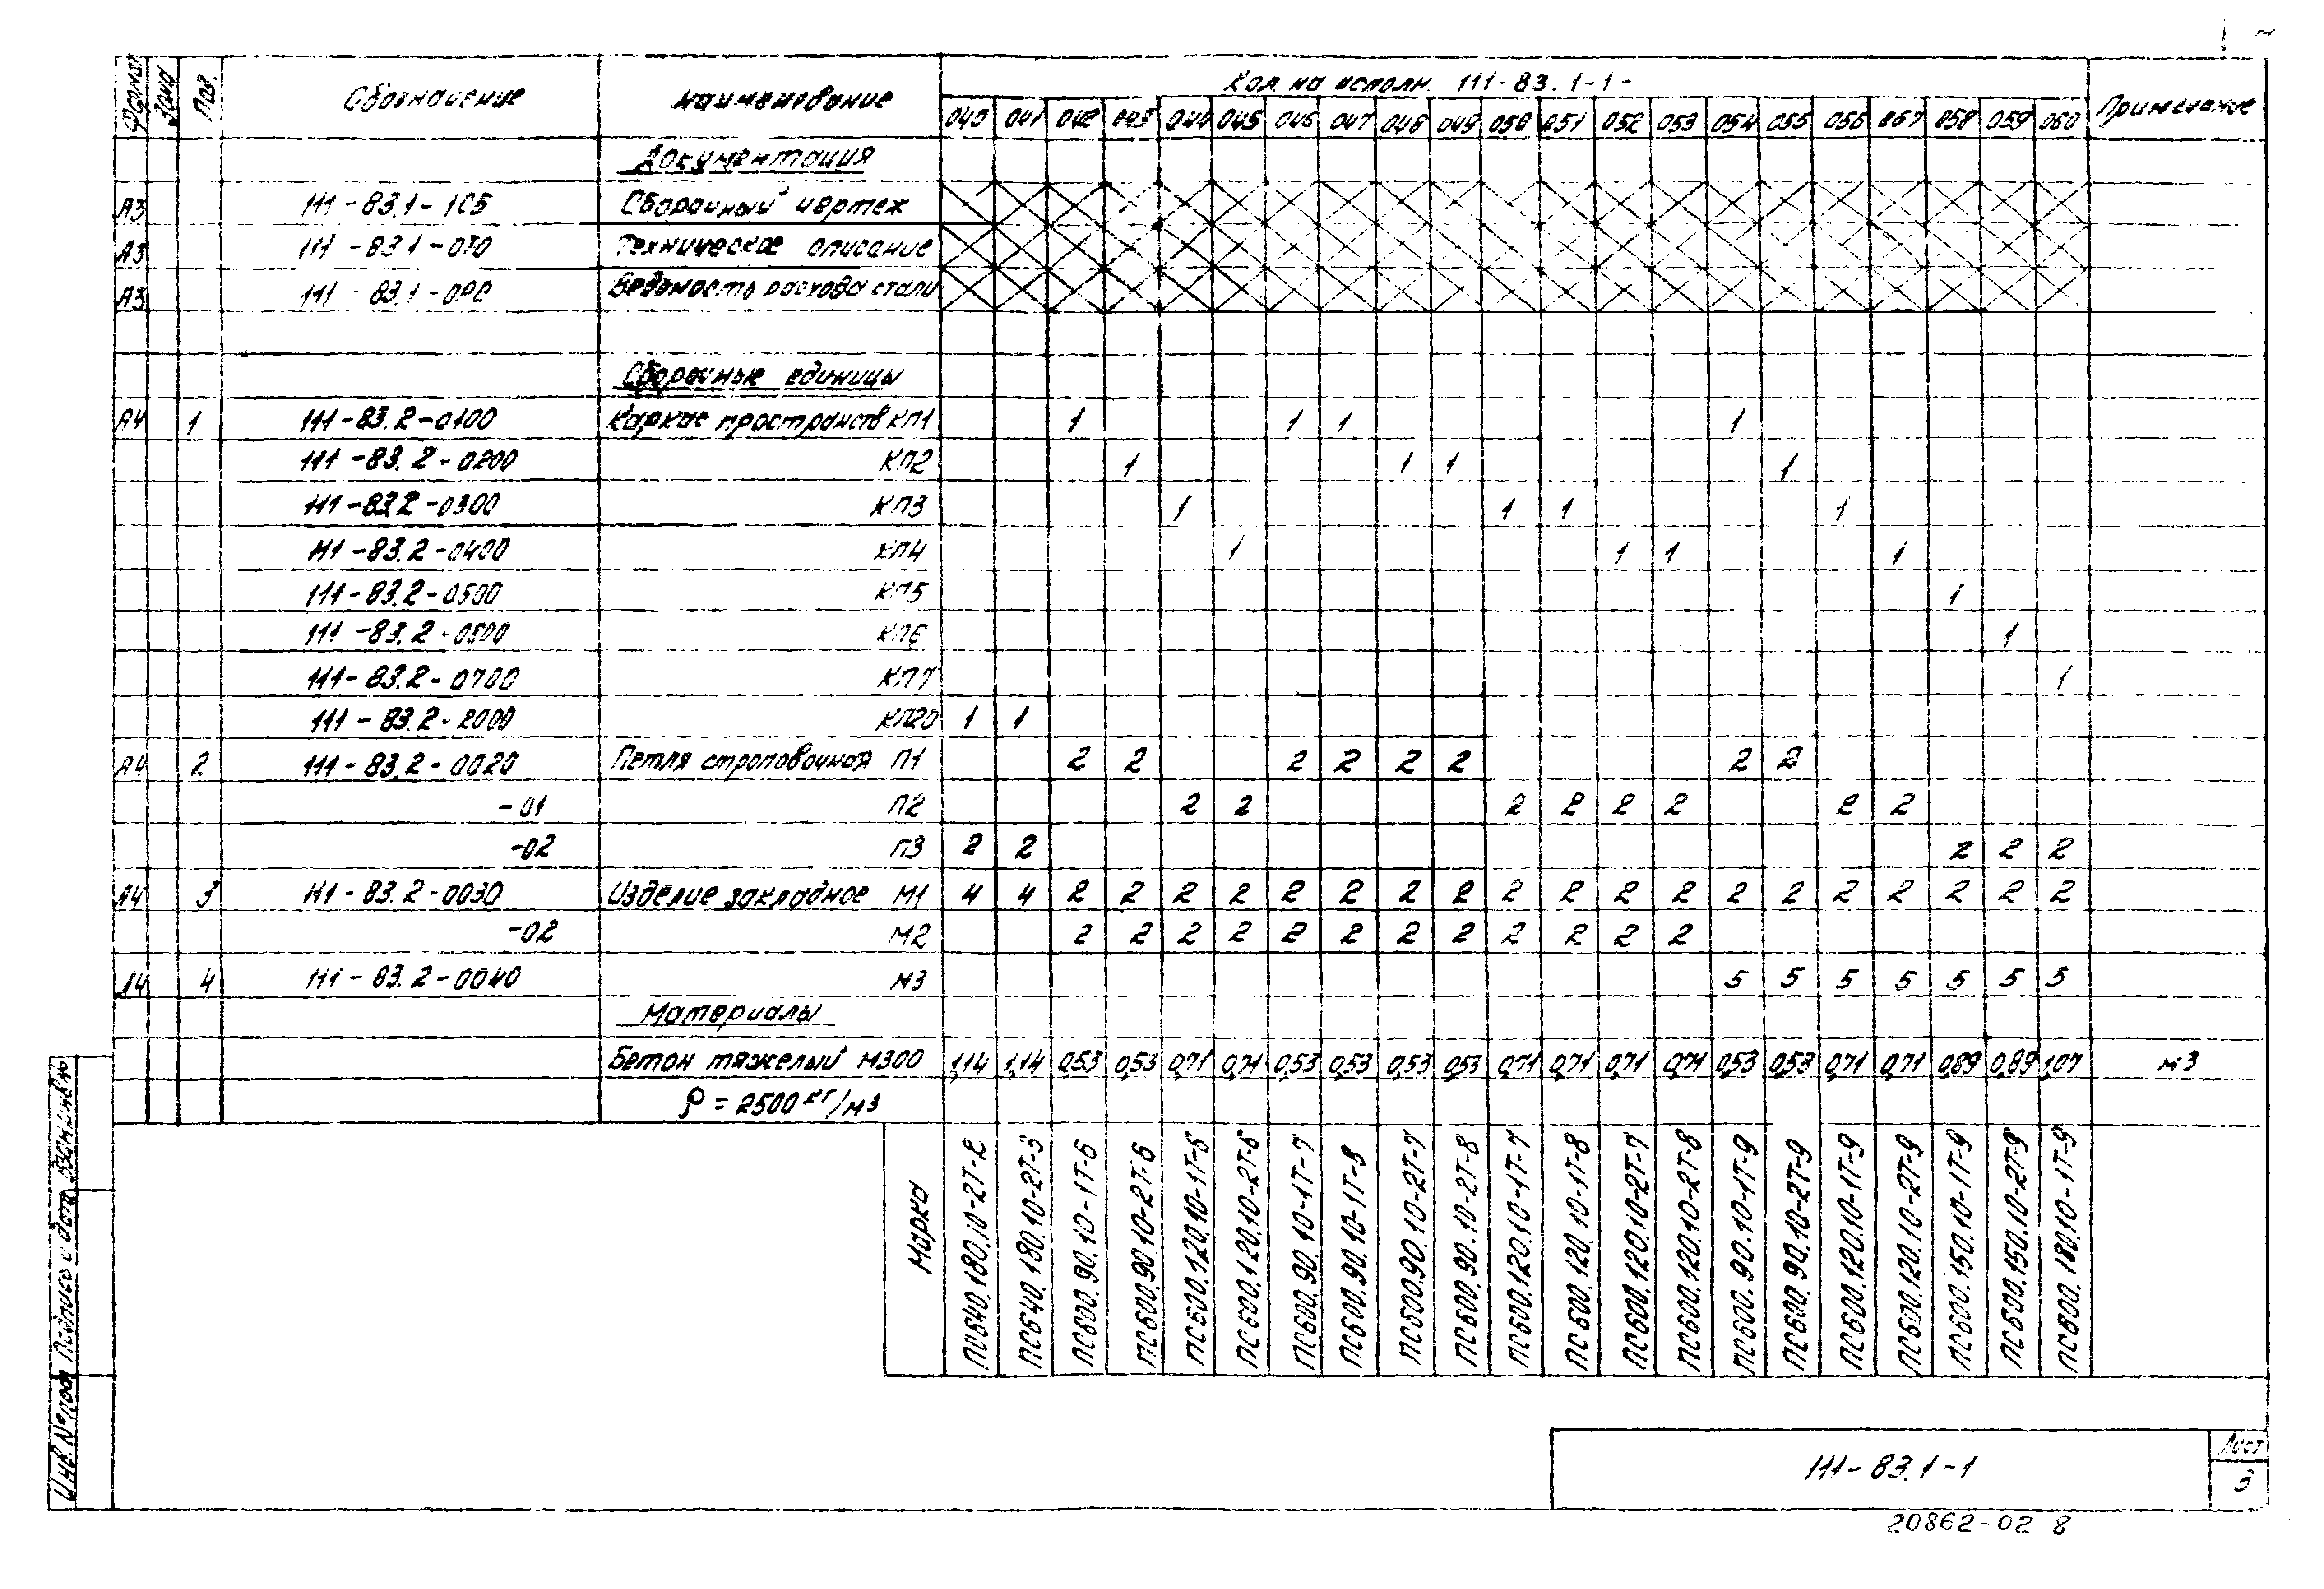 Формат Зона Поз. Обозначение Наименование Кол. на исполн. 111-83.1-1- Примечание
040 041 042 043 044 045 046 047 048 049 050 051 052 053 054 055 056 057 058 059 060
Документация
А3 111-83.1-1СБ Сборочный чертеж
А3 111-83.1-0ТО Техническое описание
А3 111-83.1-0РС Ведомость расхода стали
Сборочные единицы
А4 1 111-83.2-0100 Каркас пространств КП1 1 1 1 1
111-83.2-0200 КП2 1 1 1 1
111-83.2-0300 КП3 1 1 1 1
111-83.2-0400 КП4 1 1 1 1
111-83.2-0500 КП5 1
111-83.2-0600 КП6 1
111-83.2-0700 КП7 1
111-83.2-2000 КП20 1 1
А4 2 111-83.2-0020 Петля строповочная П1 2 2 2 2 2 2 2 2
-01 П2 2 2 2 2 2 2 2 2
-02 П3 2 2 2 2 2
А4 3 111-83.2-0030 Изделие закладное М1 4 4 2 2 2 2 2 2 2 2 2 2 2 2 2 2 2 2 2 2 2
-02 М2 2 2 2 2 2 2 2 2 2 2 2 2
А4 4 111-83.2-0040 М3 5 5 5 5 5 5 5
Материалы
Бетон тяжелый М300 1,14 1,14 0,53 0,53 0,71 0,71 0,53 0,53 0,53 0,53 0,71 0,71 0,71 0,71 0,53 0,53 0,71 0,71 0,89 0,89 1,07 м3
ρ = 2500 кг/м3
Марка
ПС640.180.10-2Т-2
ПС640.180.10-2Т-3
ПС600.90.10-1Т-6
ПС600.90.10-2Т-6
ПС600.120.10-1Т-6
ПС600.120.10-2Т-6
ПС600.90.10-1Т-7
ПС600.90.10-1Т-8
ПС600.90.10-2Т-7
ПС600.90.10-2Т-8
ПС600.120.10-1Т-7
ПС600.120.10-1Т-8
ПС600.120.10-2Т-7
ПС600.120.10-2Т-8
ПС600.90.10-1Т-9
ПС600.90.10-2Т-9
ПС600.120.10-1Т-9
ПС600.120.10-2Т-9
ПС600.150.10-1Т-9
ПС600.150.10-2Т-9
ПС600.180.10-1Т-9
Инв. № подл Подпись и дата Взам.инв.№
111-83.1-1
Лист
3
20862-02 8